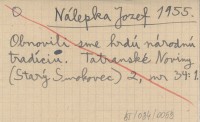 Nálepka Jozef 1955.
Obnovili sme hrdú národnú
tradíciu. Tatranské Noviny
(Starý Smokovec) 2, nr 34:1.